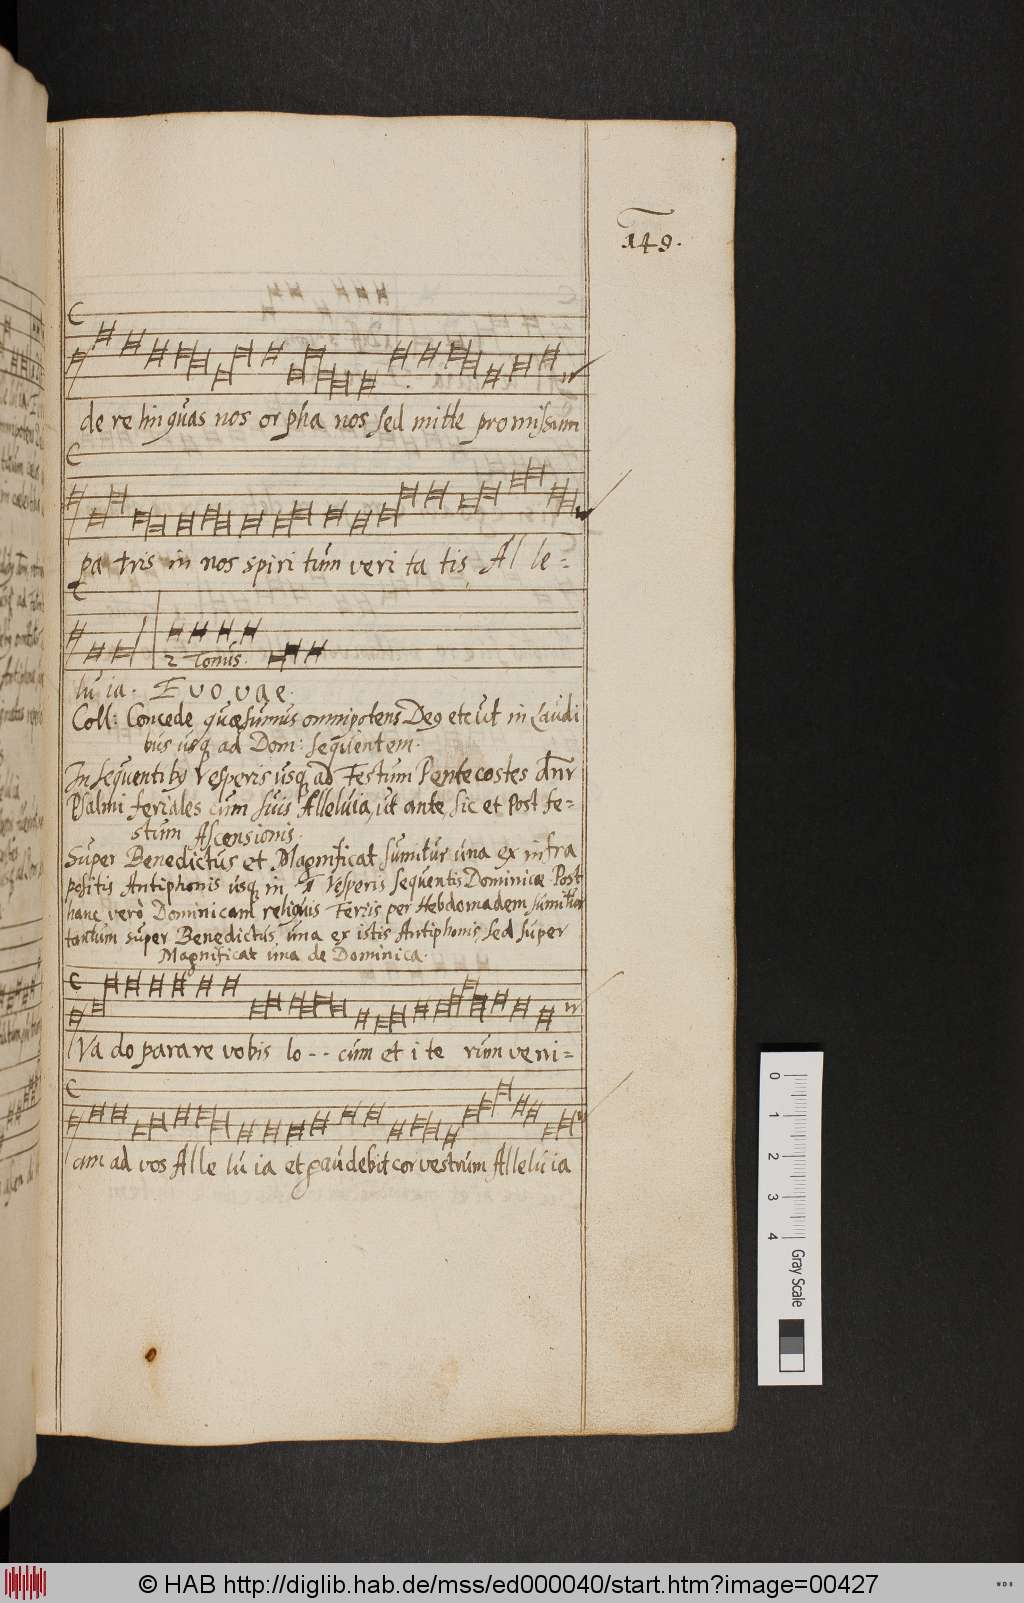 149.
de re lin quas nos or pha nos sed mitte promissum
pa tris in nos spiri tum veri ta tis Al le-
2 Tonus.
lu ia. E v o v a e.
Coll: Concede quæsumus omnipotens De9 etc ut in Laudi
bus usq ad Dom: sequentem.
In sequentib9 Vesperis usq ad Festum Pentecostes dnr
Psalmi feriales cum suis Alleluia, ut ante, sic et post fe-
stum Ascensionis.
Super Benedictus et Magnificat sumitur una ex infra
positis Antiphonis usq in Vesperis sequentis Dominicæ. Post
hanc verò Dominicam reliquis Feriis per Hebdomadem sumitur
tantum super Benedictus una ex istis Antiphonis, sed super
Magnificat una de Dominica.
Va do parare vobis lo-- cum et i te rum veni-
am ad vos Alle lu ia et gaudebit cor vestrum Alleluia
0 1 2 3 4 Gray Scale
© HAB http://diglib.hab.de/mss/ed000040/start.htm?image=00427